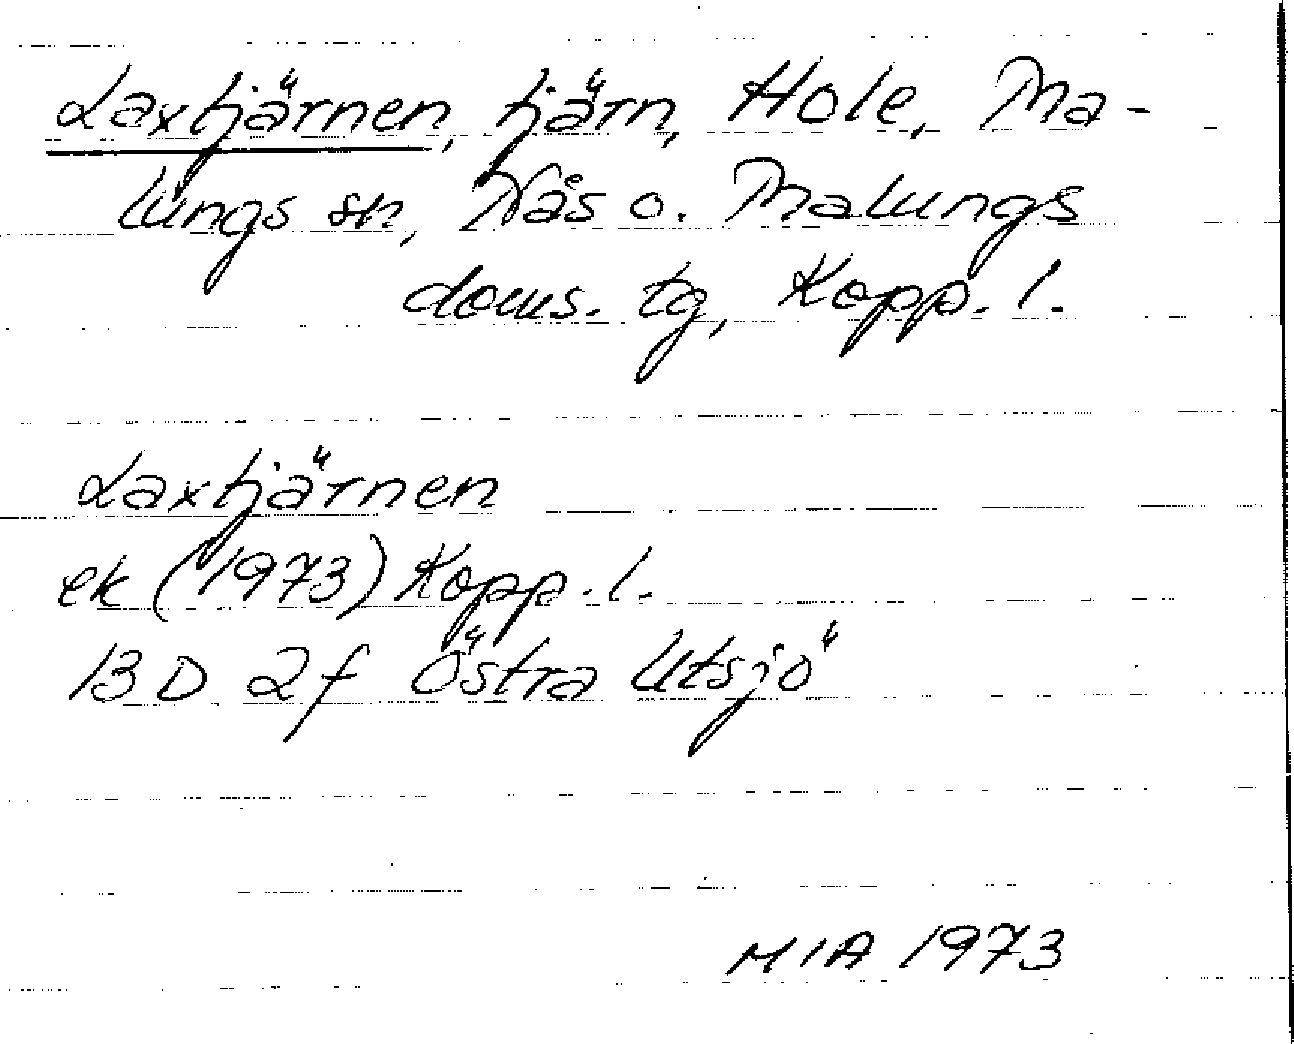 Laxtjärnen, tjärn, Hole, Ma-
lungs sn, Nås o. Malungs
doms. tg, Kopp. l.
Laxtjärnen
ek (1973) Kopp. l.
13 D 2f Östra Utsjö
MIA 1973